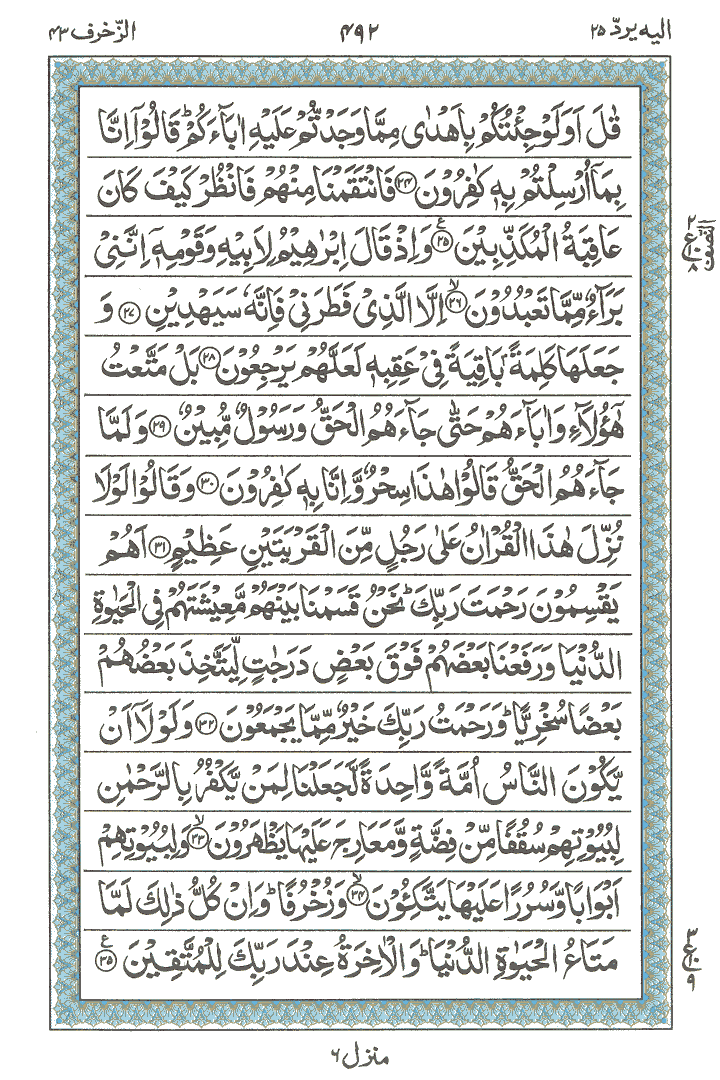 اليه يردّ ۲۵
۴۹۲
الزّخرف ۴۳
قٰلَ اَوَلَوْ جِئْتُكُمْ بِاَهْدٰى مِمَّا وَجَدْتُّمْ عَلَيْهِ اٰبَآءَكُمْ ؕ قَالُوْۤا اِنَّا
بِمَاۤ اُرْسِلْتُمْ بِهٖ كٰفِرُوْنَ ﴿۲۴﴾ فَانْتَقَمْنَا مِنْهُمْ فَانْظُرْ كَيْفَ كَانَ
عَاقِبَةُ الْمُكَذِّبِيْنَ ﴿۲۵﴾ ع وَاِذْ قَالَ اِبْرٰهِيْمُ لِاَبِيْهِ وَقَوْمِهٖۤ اِنَّنِىْ
النّصف
۲
ع
۱۰
۸
بَرَآءٌ مِّمَّا تَعْبُدُوْنَ ﴿۲۶﴾ ۙ اِلَّا الَّذِىْ فَطَرَنِىْ فَاِنَّهٗ سَيَهْدِيْنِ ﴿۲۷﴾ وَ
جَعَلَهَا كَلِمَةًۢ بَاقِيَةً فِىْ عَقِبِهٖ لَعَلَّهُمْ يَرْجِعُوْنَ ﴿۲۸﴾ بَلْ مَتَّعْتُ
هٰٓؤُلَآءِ وَاٰبَآءَهُمْ حَتّٰى جَآءَهُمُ الْحَقُّ وَرَسُوْلٌ مُّبِيْنٌ ﴿۲۹﴾ وَلَمَّا
جَآءَهُمُ الْحَقُّ قَالُوْا هٰذَا سِحْرٌ وَّاِنَّا بِهٖ كٰفِرُوْنَ ﴿۳۰﴾ وَقَالُوْا لَوْلَا
نُزِّلَ هٰذَا الْقُرْاٰنُ عَلٰى رَجُلٍ مِّنَ الْقَرْيَتَيْنِ عَظِيْمٍ ﴿۳۱﴾ اَهُمْ
يَقْسِمُوْنَ رَحْمَتَ رَبِّكَ ؕ نَحْنُ قَسَمْنَا بَيْنَهُمْ مَّعِيْشَتَهُمْ فِى الْحَيٰوةِ
الدُّنْيَا وَرَفَعْنَا بَعْضَهُمْ فَوْقَ بَعْضٍ دَرَجٰتٍ لِّيَتَّخِذَ بَعْضُهُمْ
بَعْضًا سُخْرِيًّا ؕ وَرَحْمَتُ رَبِّكَ خَيْرٌ مِّمَّا يَجْمَعُوْنَ ﴿۳۲﴾ وَلَوْلَاۤ اَنْ
يَّكُوْنَ النَّاسُ اُمَّةً وَّاحِدَةً لَّجَعَلْنَا لِمَنْ يَّكْفُرُ بِالرَّحْمٰنِ
لِبُيُوْتِهِمْ سُقُفًا مِّنْ فِضَّةٍ وَّمَعَارِجَ عَلَيْهَا يَظْهَرُوْنَ ﴿۳۳﴾ ۙ وَلِبُيُوْتِهِمْ
اَبْوَابًا وَّسُرُرًا عَلَيْهَا يَتَّكِئُوْنَ ﴿۳۴﴾ ۙ وَزُخْرُفًا ؕ وَاِنْ كُلُّ ذٰلِكَ لَمَّا
مَتَاعُ الْحَيٰوةِ الدُّنْيَا ؕ وَالْاٰخِرَةُ عِنْدَ رَبِّكَ لِلْمُتَّقِيْنَ ﴿۳۵﴾ ع
۳
ع
۱۰
۹
منزل ۶